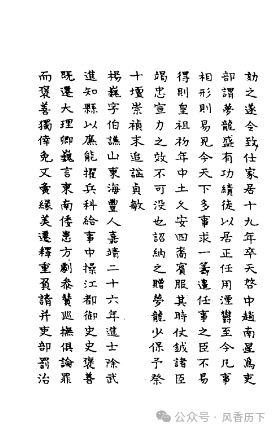 劾之遂令致仕家居十九年卒天啓中趙南星爲吏
部謂夢龍盛有功績徒以居正任用湮鬱至今凡事
相形則易見今天下多事求一籌邊任事之臣不易
得則皇祖初年中土久安四裔賓服其時仗鉞諸臣
竭忠宣力之效不可没也詔納之贈夢龍少保予祭
十壇崇禎末追諡貞敏
楊巍字伯謙山東海豐人嘉靖二十六年進士除武
進知縣以廉能擢兵科給事中操江都御史史褒善
既遷大理卿巍言東南倭患方劇參贊巡撫俱論罪
而褒善獨倖免又夤緣美遷釋重負請并吏部罰治
公众号·风香历下